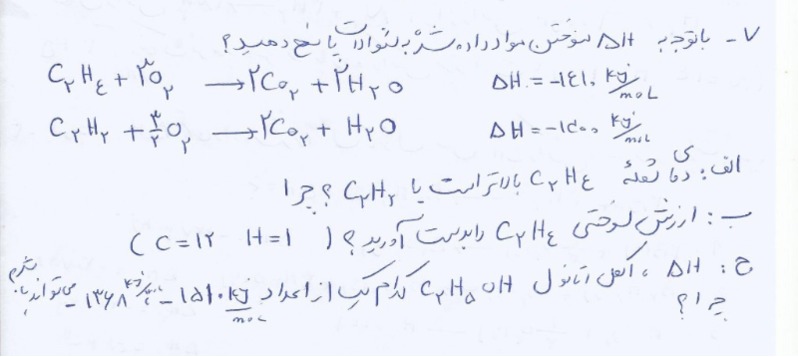 ۷- باتوجه به ΔH سوختن مواد داده شده به سئوالات پاسخ دهید؟
C₂H₄ + ۳O₂ → ۲CO₂ + ۲H₂O ΔH = -۱۴۱۰ kj/moL
C₂H₂ + ۳/۲O₂ → ۲CO₂ + H₂O ΔH = -۱۵۰۰ kj/moL
الف: دمای شعلهٔ C₂H₄ بالاتر است یا C₂H₂؟ چرا
ب: ارزش سوختی C₂H₄ را بدست آورید؟ (C=۱۲ H=۱)
ج: ΔH، الکل اتانول C₂H₅OH کدام یک از اعداد -۱۵۱۰ kj/moL -۱۳۶۸ می تواند باشد
چرا؟